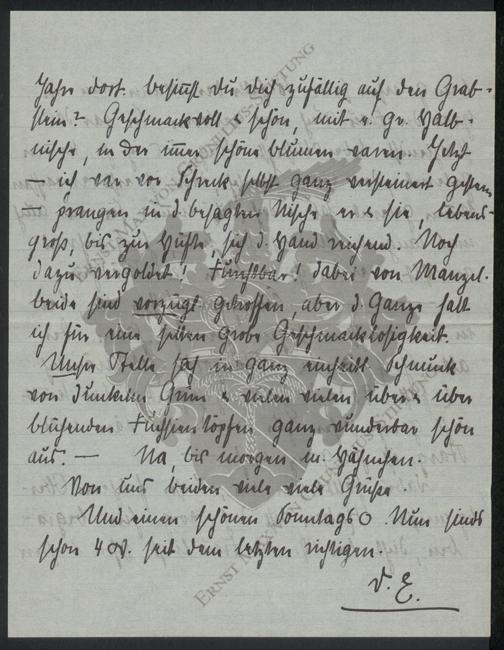 Jahr dort. besinnst du dich zufällig auf den Grab-
stein? Geschmackvoll & schön, mit e. gr. Halb-
nische, in der immer schöne blumen waren. Jetzt
– ich war vor Schreck selbst ganz versteinert gestern
– prangen in d. besagten Nische er & sie lebens-
groß, bis zur Hüfte, sich d. Hand reichend. Noch
dazu vergoldet! Furchtbar! dabei von Manzel.
beide sind vorzügl getroffen, aber d. Ganze halt
ich für eine selten grobe Geschmacklosigkeit.
Unsre Stelle sah in ganz einheitl Schmuck
von dunkelm Grün & vielen vielen über & über
blühenden Fuchsientöpfen ganz wunderbar schön
aus. — Na, bis morgen m. Hähnchen.
Von uns beiden viele viele Grüße.
Und einen schönen Sonntags O. Nun sinds
schon 4 W. seit dem letzten richtigen.
d. E.
ERNST MAX VON GRUNELIUS-STIFTUNG
ERNST MAX VON GRUNELIUS-STIFTUNG